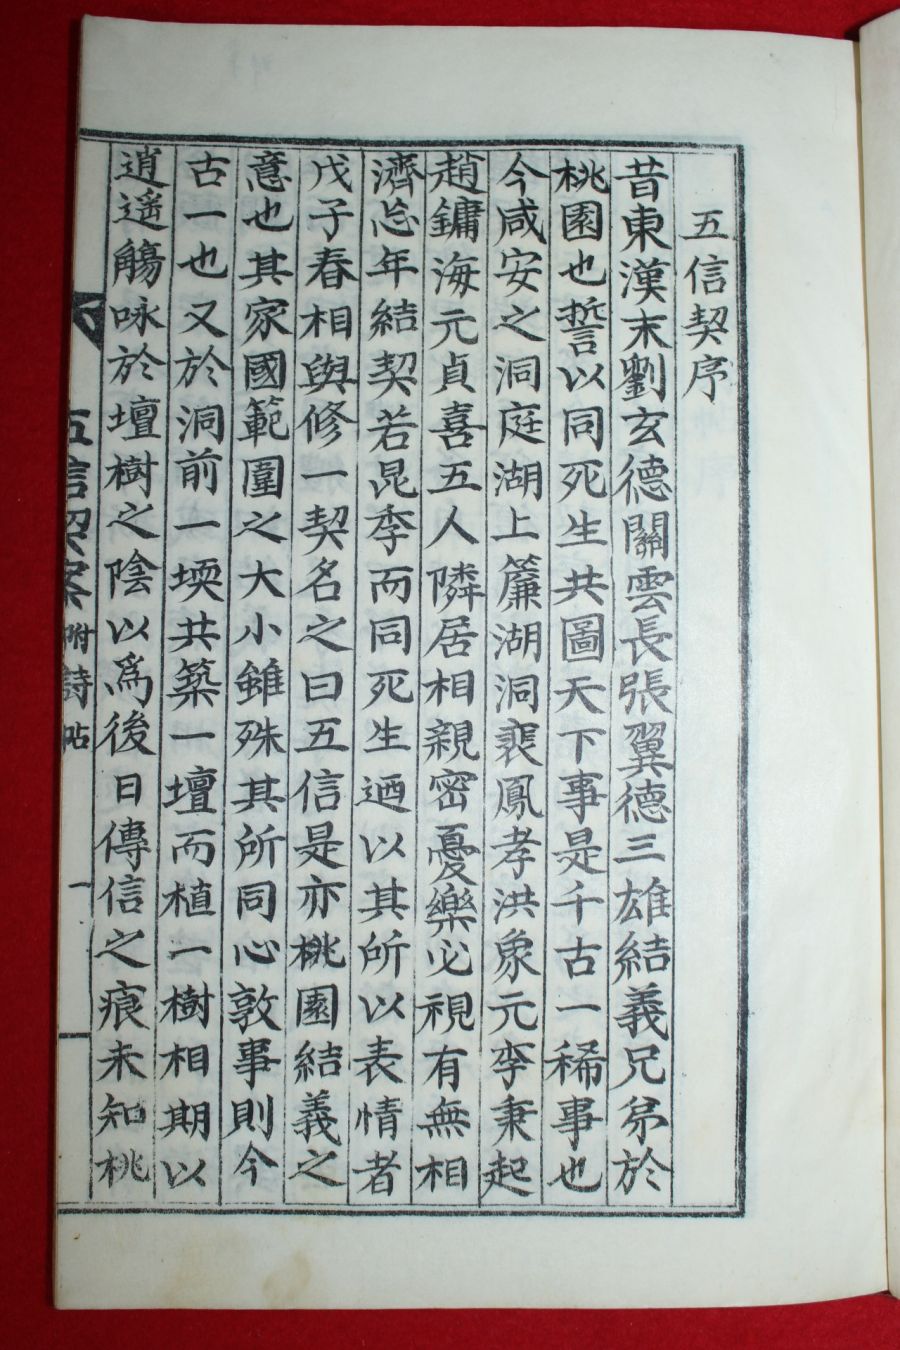 五信契序
昔東漢末劉玄德關雲長張翼德三雄結義兄弟於
桃園也誓以同死生共圖天下事是千古一稀事也
今咸安之洞庭湖上簾湖洞裵鳳孝洪象元李秉起
趙鏞海元貞喜五人隣居相親密憂樂必視有無相
濟忘年結契若昆季而同死生迺以其所以表情者
戊子春相與修一契名之曰五信是亦桃園結義之
意也其家國範圍之大小雖殊其所同心敦事則今
古一也又於洞前一堧共築一壇而植一樹相期以
逍遙觴咏於壇樹之陰以爲後日傳信之痕未知桃
五信契案附詩帖
一